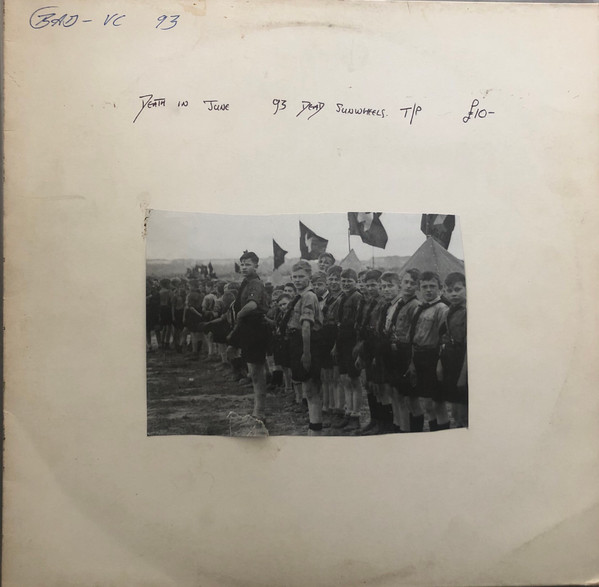 BAD-VC 93
DEATH IN JUNE 93 DEAD SUNWHEELS. T/P £10-